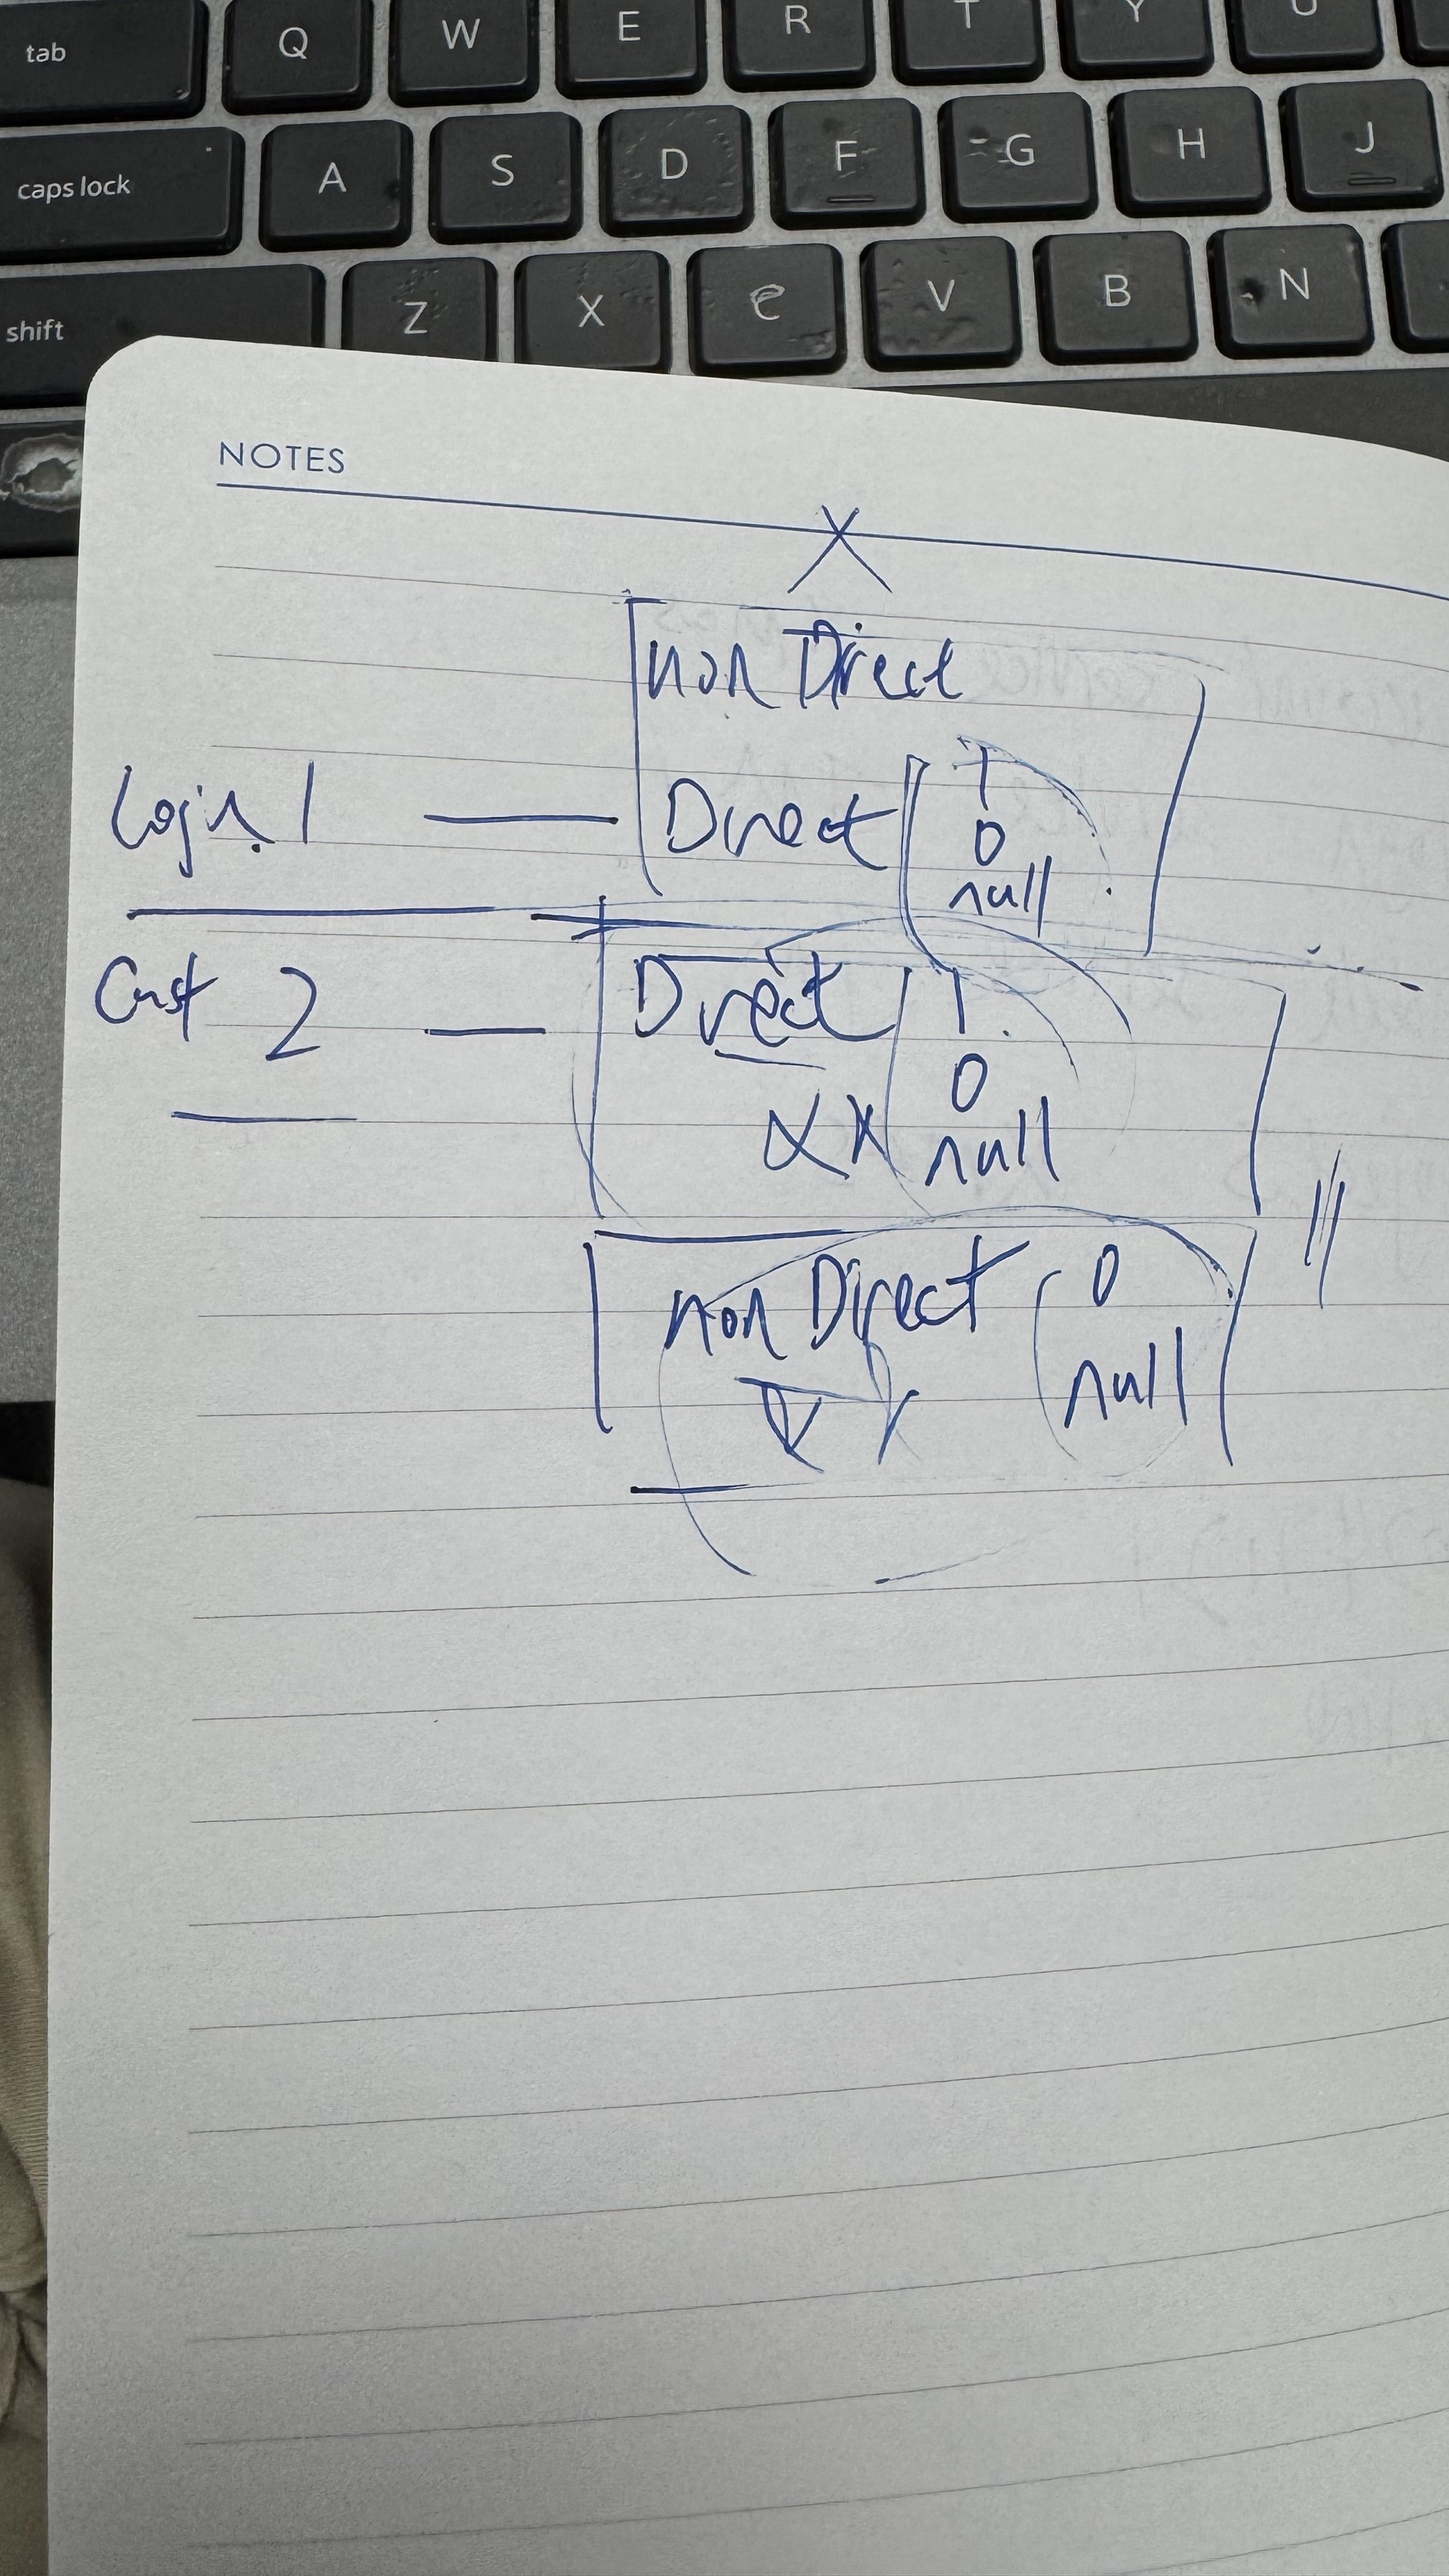 tab Q W E R T Y U
caps lock A S D F G H J
shift Z X C V B N
NOTES
X
non Direct
Login 1 — Direct 1
0
null
Cust 2 — Direct 1
0
null
non Direct 0
null